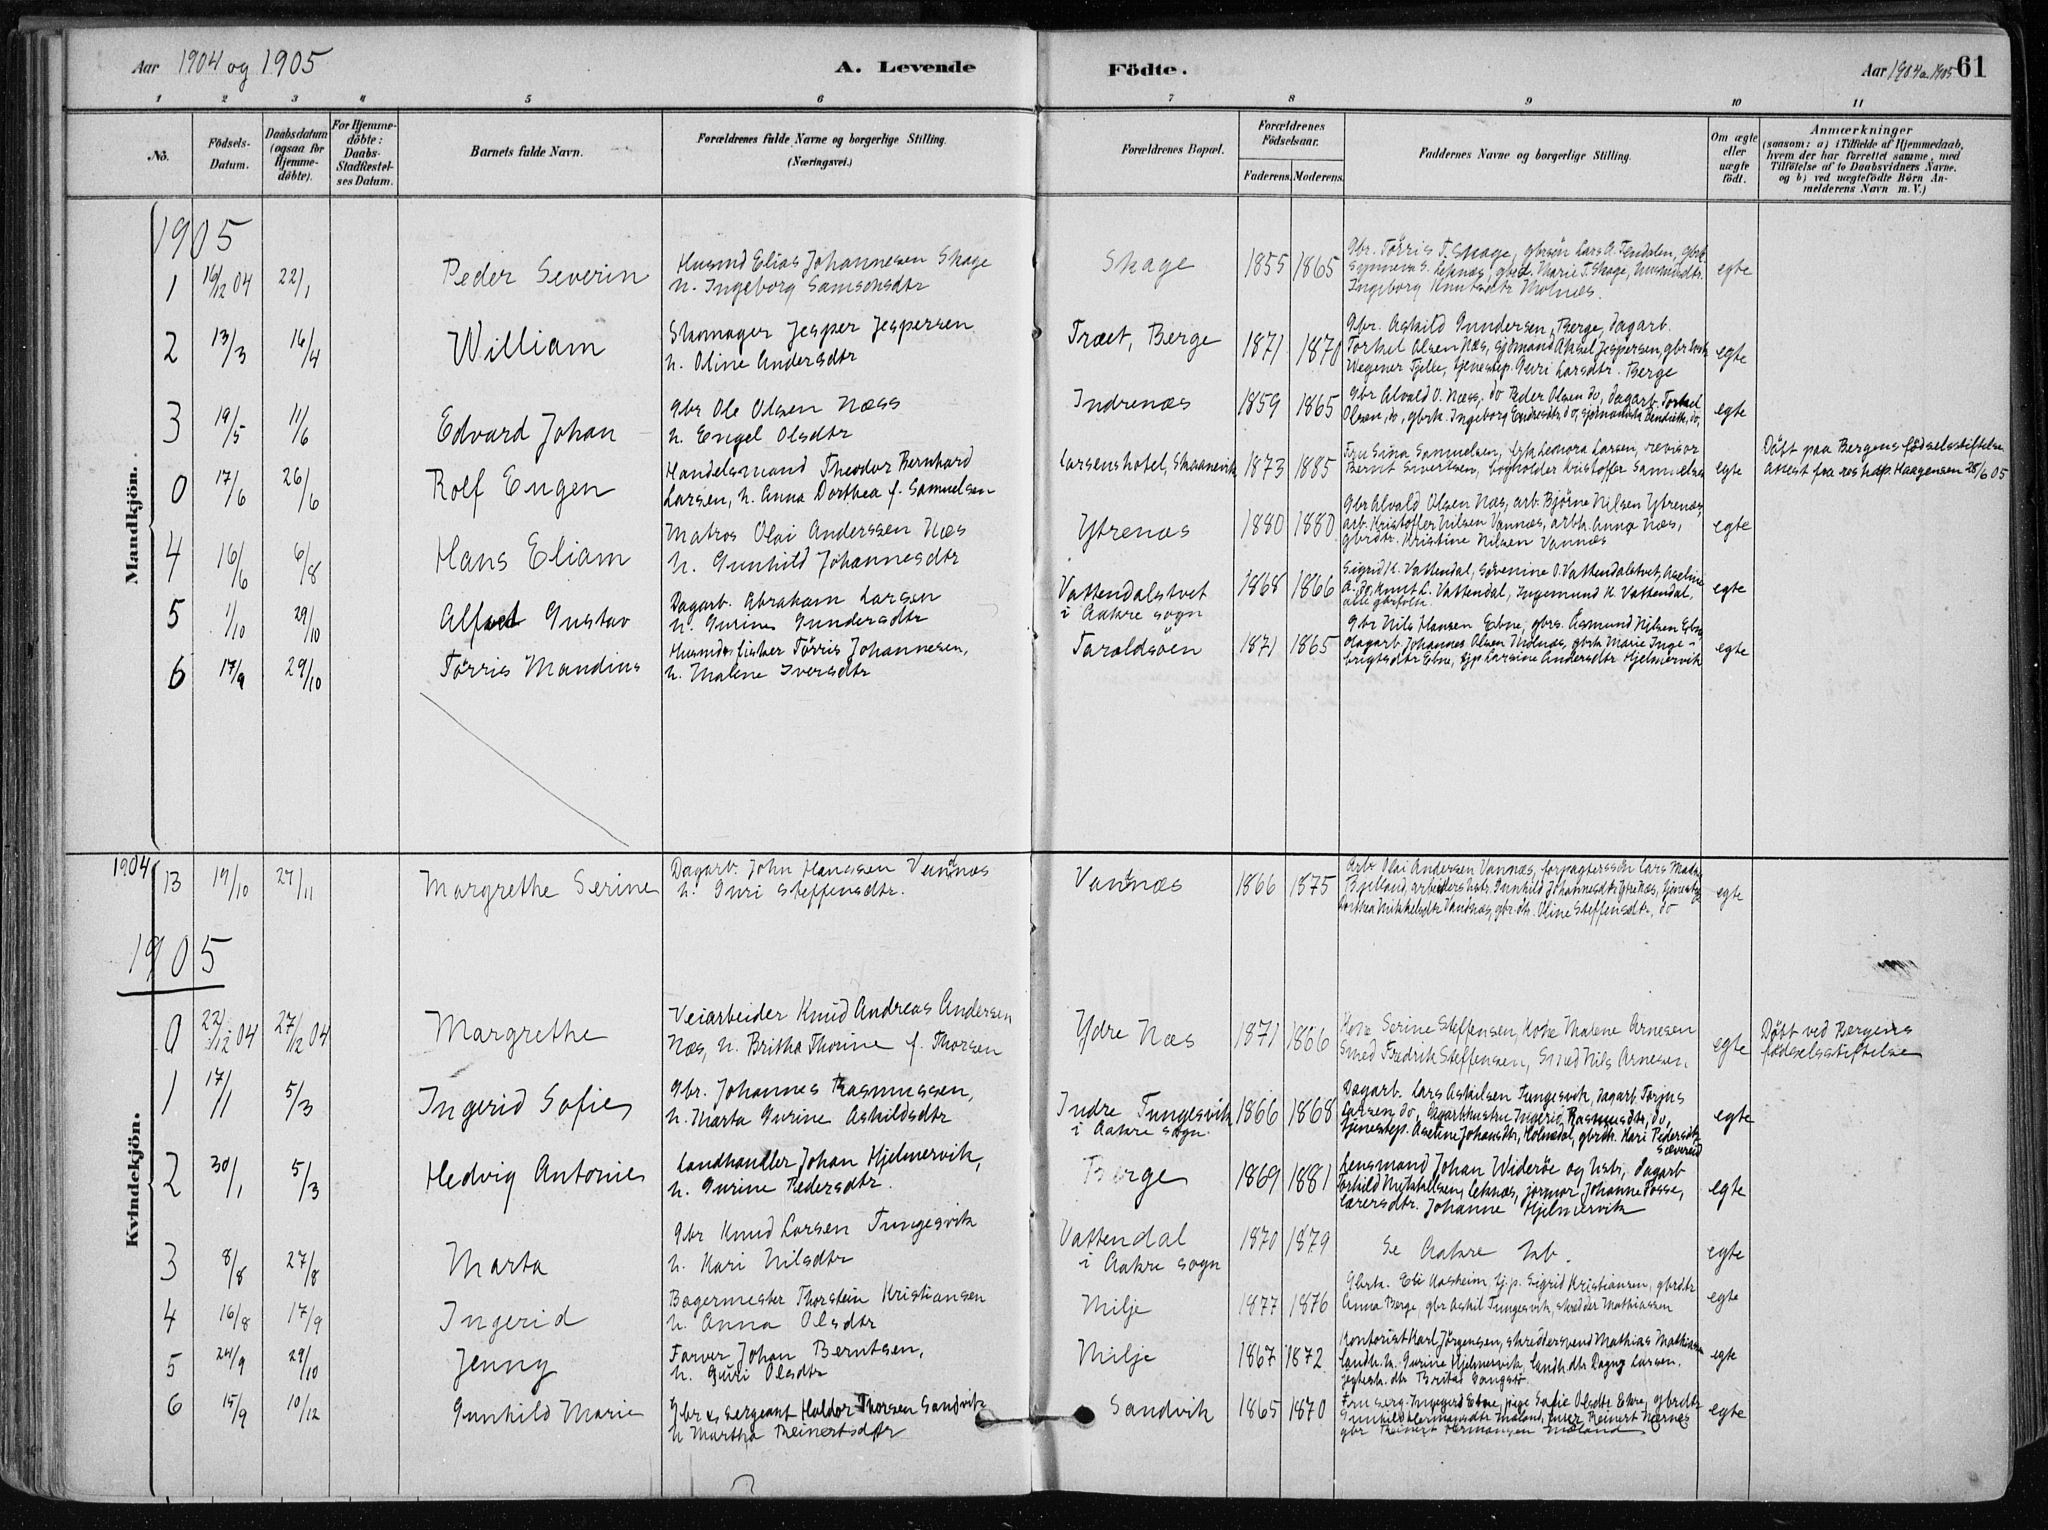 Aar 1904 og 1905
A. Levende
Födte.
Aar 1904 o. 1905 61
1 2 3 4 5 6 7 8 9 10 11
No.
Födsels-
Datum.
Daabsdatum
(ogsaa for
Hjemme-
döbte).
For Hjemme-
döbte:
Daabs-
Stadfæstel-
ses Datum.
Barnets fulde Navn.
Forældrenes fulde Navne og borgerlige Stilling.
(Næringsvei.)
Forældrenes Bopæl.
Forældrenes
Födselsaar.
Faderens. Moderens.
Faddernes Navne og borgerlige Stilling.
Om ægte
eller
uægte
født.
Anmærkninger
(saasom: a) i Tilfælde af Hjemmedaab,
hvem der har forrettet samme, med
Tilföielse af to Daabsvidners Navne,
og b) ved uægtefödte Börn An-
melderens Navn m. V.)
Mandkjön.
1905
1 16/12 04 22/1 Peder Severin
Husmd Elias Johannesen Skage
h. Ingeborg Samsonsdtr
Skage 1855 1865
gbr. Törris T. Skage, gbrsön Lars A. Tendalen, gbrk.
Synneva S. Leknæs, gbrd. Marie T. Skage, husmdsdtr.
Ingeborg Knutsdtr Molnæs.
egte
2 13/3 16/4 William
Skomager Jesper Jespersen
h. Oline Andersdtr
Træet, Berge 1871 1870
gbr. Askild Gundersen, Berge, dagarb.
Torkel Olsen Næs, sjömand Aksel Jespersen, gbr
Wegener Fjelle, tjenestep. Guri Larsdtr. Berge
egte
3 19/5 11/6 Edvard Johan
gbr Ole Olsen Næss
h. Engel Olsdtr
Indrenæs 1859 1865
gbr Alvald O. Næss, do Peder Olsen do, dagarb. Torkel
Olsen, do, gbrk. Ingeborg Endresdtr do,
egte
0 17/6 26/6 Rolf Eugen
Handelsmand Theodor Bernhard
Larsen, h. Anna Dorthea f. Samuelsen
Larsens hotel, Skaanevik 1873 1885
Fru Sina Samuelsen, frk. Lenora Larsen, revisor
Bernt Sivertsen, bogholder Kristoffer Samuelsen
egte
Döbt paa Bergens födselsstiftelse
Attest fra res. kap. Haagensen 28/6 05
4 16/6 6/8 Hans Eliam
Matros Olai Anderssen Næs
h. Gunhild Johannesdtr
Ytrenæs 1880 1880
gbr Alvald Olsen Næs, arb. Bjørne Nilsen Ytrenæs,
arb. Kristoffer Nilsen Vannæs, arbk. Anna Næs,
gbrdtr. Kristine Nilsen Vannæs
egte
5 1/10 29/10 Alfred Gustav
Dagarb. Abraham Larsen
h. Gurine Gundersdtr
Vattendalstvet
i Aakre sogn
1868 1866
Sigrid K. Vattendal, Sørenine O. Vattendalstvet, Aseline
A. do, Knut L. Vattendal, Ingemund K. Vattendal,
alle gbrfolk.
egte
6 17/9 29/10 Törris Mandius
Husmd & fisker Törris Johannesen,
h. Malene Iversdtr
Taraldsöen 1871 1865
gbr Nils Hansen Ebne, gbrs. Asmund Nilsen Ebne
dagarb. Johannes Olsen Molnæs, gbrk. Marie Inge-
brigtsdtr Ebne, tjp Larsine Andersdtr Hjelmervik
egte
Kvindekjön.
1904 13 19/10 27/11 Margrethe Serine
Dagarb. John Hanssen Vandnæs
h. Guri Steffensdtr.
Vandnæs 1866 1875
Arb Olai Andersen Vannæs, forpagterssön Lars
arbeiders hstr. Gunhild Johannesdtr Ytre Næs, tjenestep.
Dorthea Mikkelsdtr Vandnæs, gbr.dtr. Oline Steffensdtr, do
egte
1905
0 22/12 04 27/12 04 Margrethe
Veiarbeider Knud Andreas Andersen
Næs, h. Britha Thorine f. Thorsen
Ydre Næs 1871 1866
Kone Serine Steffensen, Kone Malene Arnesen
Smed Fredrik Steffensen, Smed Nils Arnesen.
egte
Döbt ved Bergens
födselsstiftelse
1 17/1 5/3 Ingerid Sofie
gbr. Johannes Rasmussen,
h. Marta Gurine Askildsdtr
Indre Tungesvik
i Aakre sogn.
1866 1868
Dagarb. Lars Askilsen Tungesvik, dagarb Torjus
Larsen do, dagarbhustru Ingerid Rasmusdtr, do,
tjenestep. Aseline Johansdtr, Holmedal, gbrdtr. Kari Pedersdtr
Sævereid
egte
2 30/1 5/3 Hedvig Antonie
Landhandler Johan Hjelmervik,
h. Gurine Pedersdtr.
Berge 1869 1881
Lensmand Johan Wideröe og hstr, dagarb
Torkild Mikkelsen, Leknæs, jormor Johanne Fosse,
lærersdtr. Johanne Hjelmervik
egte
3 8/8 27/8 Marta
gbr Knud Larsen Tungesvik
h. Kari Nilsdtr
Vattendal
i Aakre sogn
1870 1879
Se Aakre kb.
egte
4 16/8 17/9 Ingerid
Bagermester Thorstein Kristiansen
h. Anna Olsdtr
Milje 1877 1876
Gbrk. Eli Aasheim, tj.p. Sigrid Kristiansen, gbrdtr
Anna Berge, gbr Askil Tungesvik, skredder Mathiassen
egte
5 24/9 29/10 Jenny
Farver Johan Berntsen,
h. Guri Olsdtr
Milje 1867 1872
Kontorist Karl Jörgensen, skreddersvend Mathias Mathiassen
landh. h. Gurine Hjelmervik, landh.dtr Dagny Larsen,
dtr Brita
egte
6 15/9 10/12 Gunhild Marie
Gbr & sergeant Haldor Thorsen Sandvik
h Martha Reinertsdtr
Sandvik 1865 1870
Fru Ingegerd Ebne, pige Sofie Olsdtr Ebne, gbrdtr
Gunhild Hermansdtr Mæland, Reinert Nernes
gbr Reinert Hermansen Mæland
egte